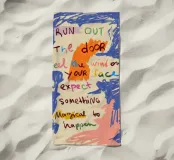 RUN OUT
The DOOR
of the window
YOUR face
expect
something
Magical to
happen